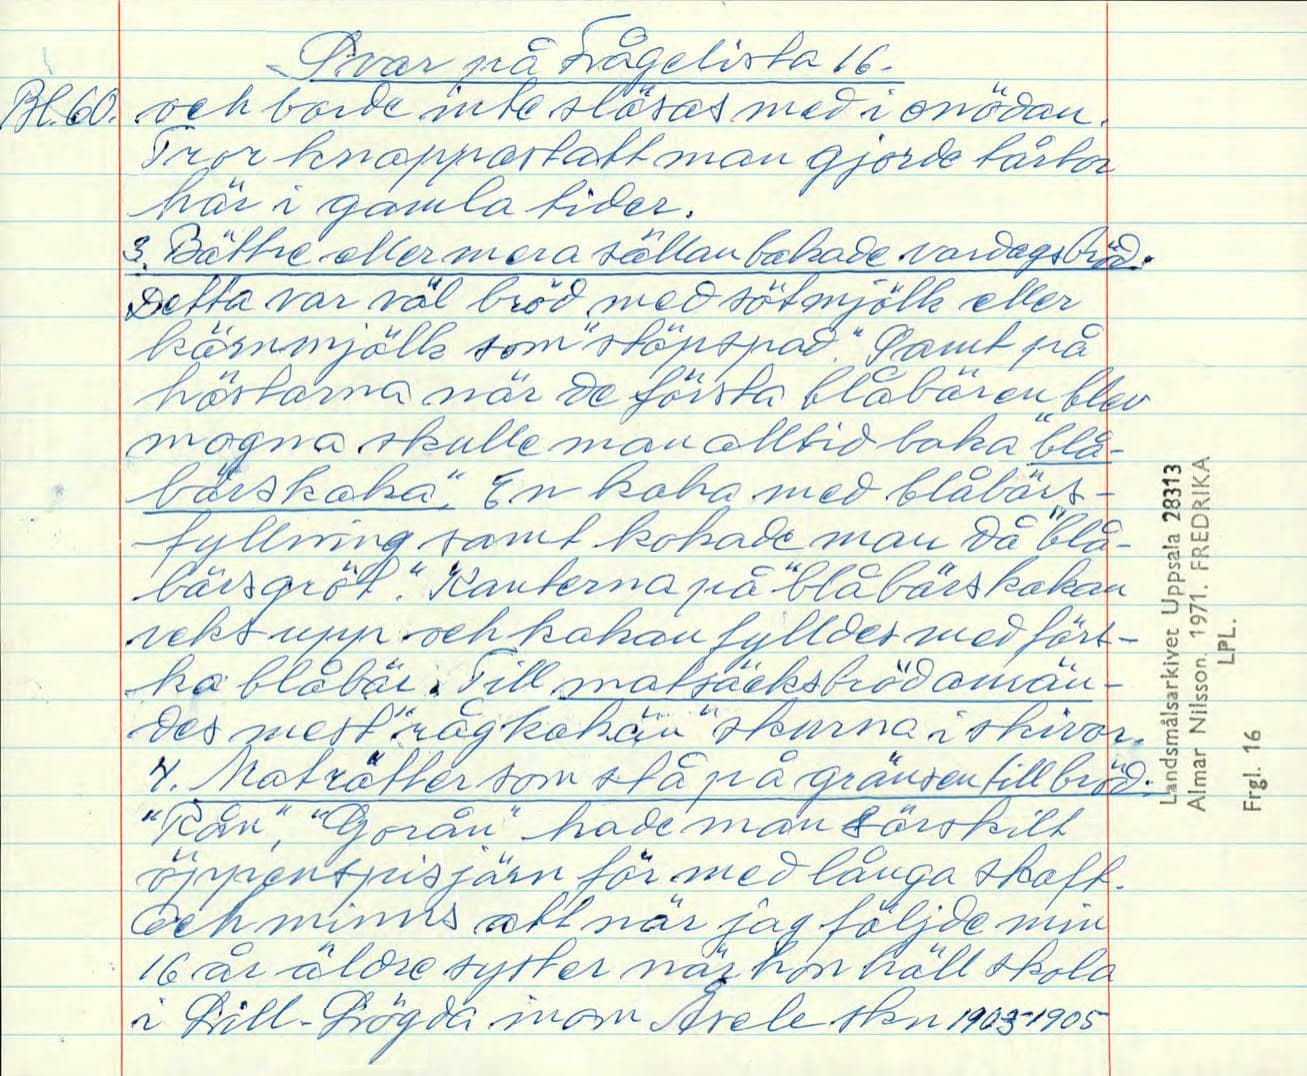 Svar på Frågelista 16.
Bl.60. och borde inte slösas med i onödan.
Tror knappast att man gjorde tårtor
här i gamla tider.
3. Bättre eller mera sällan bakade vardagsbröd.
Detta var väl bröd med sötmjölk eller
kärnmjölk som "stöpspad." Samt på
höstarna när de första blåbären blev
mogna skulle man alltid baka "blå-
bärskaka". En kaka med blåbärs-
fyllning samt kokade man då "blå-
bärsgröt." Kanterna på "blåbärskakan
veks upp och kakan fylldes med färs-
ka blåbär. Till matsäcksbröd använ-
des mest "rågkakan" skurna i skivor.
4. Maträtter som stå på gränsen till bröd.
"Rån", "Gorån" hade man särskilt
öppenspisjärn för med långa skaft.
Och minns att när jag följde min
16 år äldre syster när hon höll skola
i Lill-Lögda inom Åsele skn 1903-1905
Landsmålsarkivet Uppsala 28313
Almar Nilsson. 1971. FREDRIKA
LPL.
Frgl. 16